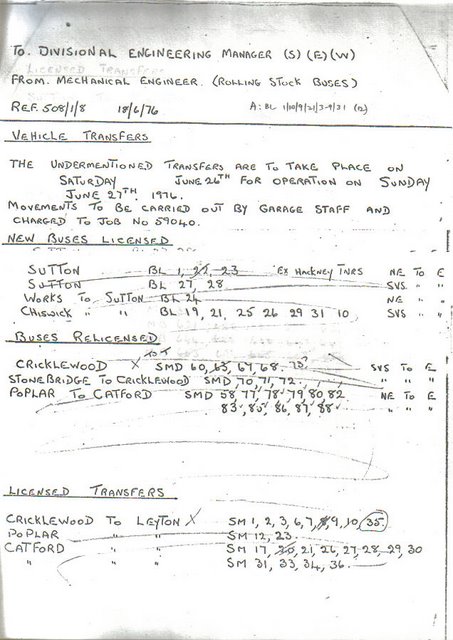 To. DIVISIONAL ENGINEERING MANAGER (S) (E) (W)
LICENSED TRANSFERS
FROM. MECHANICAL ENGINEER. (ROLLING STOCK BUSES)
REF. 508/1/8 18/6/76 A: BL 1/10/9/21/3-9/31 (12)
VEHICLE TRANSFERS
THE UNDERMENTIONED TRANSFERS ARE TO TAKE PLACE ON
SATURDAY JUNE 26TH FOR OPERATION ON SUNDAY
JUNE 27TH. 1976.
MOVEMENTS TO BE CARRIED OUT BY GARAGE STAFF AND
CHARGED TO JOB NO 59040.
NEW BUSES LICENSED
SUTTON BL 1, 22, 23 EX HACKNEY TNRS NE TO E
SUTTON BL 27, 28 SVS " "
WORKS TO SUTTON BL 24 NE " "
CHISWICK " " BL 19, 21, 25 26 29 31 10 SVS " "
BUSES RELICENSED
CRICKLEWOOD X SMD 60, 65, 67, 68. 73 SVS TO E
STONEBRIDGE TO CRICKLEWOOD SMD 70, 71, 72. " " "
POPLAR TO CATFORD SMD 58, 77, 78, 79, 80, 82 NE TO E
83, 85, 86, 87, 88 " " "
LICENSED TRANSFERS
CRICKLEWOOD TO LEYTON X SM 1, 2, 3, 6, 7, 8, 9, 10, 35
POPLAR " " SM 12, 23.
CATFORD " " SM 17, 20, 21, 26, 27, 28, 29, 30
" " " SM 31, 33, 34, 36.